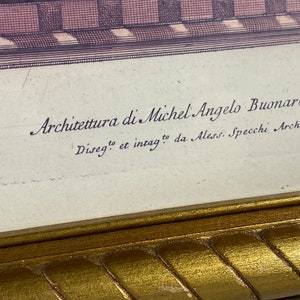 Architettura di Michel Angelo Buonar
Diseg.to et intag.to da Aless. Specchi Arch